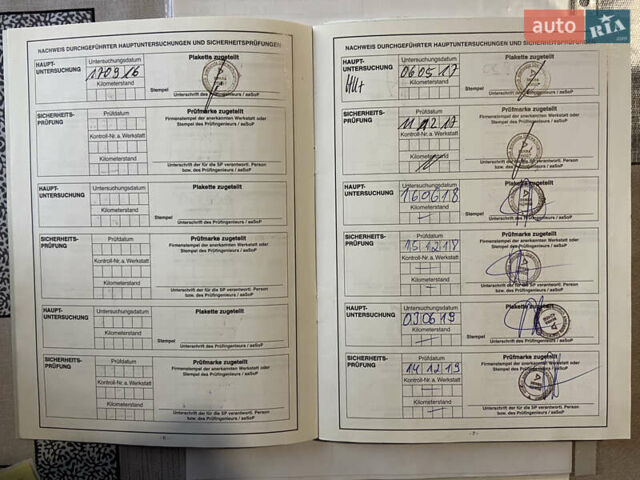 auto RIA .com
NACHWEIS DURCHGEFÜHRTER HAUPTUNTERSUCHUNGEN UND SICHERHEITSPRÜFUNGEN
HAUPT-
UNTERSUCHUNG
Untersuchungsdatum
Kilometerstand
Plakette zugeteilt
Stempel
Unterschrift des Prüfingenieurs / aaSoP
SICHERHEITS-
PRÜFUNG
Prüfdatum
Kontroll-Nr. a. Werkstatt
Kilometerstand
Prüfmarke zugeteilt
Firmenstempel der anerkannten Werkstatt oder
Stempel des Prüfingenieurs / aaSoP
Unterschrift der für die SP verantwortl. Person
bzw. des Prüfingenieurs / aaSoP
HAUPT-
UNTERSUCHUNG
Untersuchungsdatum
Kilometerstand
Plakette zugeteilt
Stempel
Unterschrift des Prüfingenieurs / aaSoP
SICHERHEITS-
PRÜFUNG
Prüfdatum
Kontroll-Nr. a. Werkstatt
Kilometerstand
Prüfmarke zugeteilt
Firmenstempel der anerkannten Werkstatt oder
Stempel des Prüfingenieurs / aaSoP
Unterschrift der für die SP verantwortl. Person
bzw. des Prüfingenieurs / aaSoP
HAUPT-
UNTERSUCHUNG
Untersuchungsdatum
Kilometerstand
Plakette zugeteilt
Stempel
Unterschrift des Prüfingenieurs / aaSoP
SICHERHEITS-
PRÜFUNG
Prüfdatum
Kontroll-Nr. a. Werkstatt
Kilometerstand
Prüfmarke zugeteilt
Firmenstempel der anerkannten Werkstatt oder
Stempel des Prüfingenieurs / aaSoP
Unterschrift der für die SP verantwortl. Person
bzw. des Prüfingenieurs / aaSoP
- 6 -
NACHWEIS DURCHGEFÜHRTER HAUPTUNTERSUCHUNGEN UND SICHERHEITSPRÜFUNGEN
HAUPT-
UNTERSUCHUNG
Untersuchungsdatum
06 05 17
Kilometerstand
Plakette zugeteilt
Stempel
Unterschrift des Prüfingenieurs / aaSoP
SICHERHEITS-
PRÜFUNG
Prüfdatum
Kontroll-Nr. a. Werkstatt
Kilometerstand
Prüfmarke zugeteilt
Firmenstempel der anerkannten Werkstatt oder
Stempel des Prüfingenieurs / aaSoP
Unterschrift der für die SP verantwortl. Person
bzw. des Prüfingenieurs / aaSoP
HAUPT-
UNTERSUCHUNG
Untersuchungsdatum
Kilometerstand
Plakette zugeteilt
Stempel
Unterschrift des Prüfingenieurs / aaSoP
SICHERHEITS-
PRÜFUNG
Prüfdatum
15 12 18
Kontroll-Nr. a. Werkstatt
Kilometerstand
Prüfmarke zugeteilt
Firmenstempel der anerkannten Werkstatt oder
Stempel des Prüfingenieurs / aaSoP
Unterschrift der für die SP verantwortl. Person
bzw. des Prüfingenieurs / aaSoP
HAUPT-
UNTERSUCHUNG
Untersuchungsdatum
03 06 19
Kilometerstand
Plakette zugeteilt
Stempel
Unterschrift des Prüfingenieurs / aaSoP
SICHERHEITS-
PRÜFUNG
Prüfdatum
14 12 19
Kontroll-Nr. a. Werkstatt
Kilometerstand
Prüfmarke zugeteilt
Firmenstempel der anerkannten Werkstatt oder
Stempel des Prüfingenieurs / aaSoP
Unterschrift der für die SP verantwortl. Person
bzw. des Prüfingenieurs / aaSoP
- 7 -